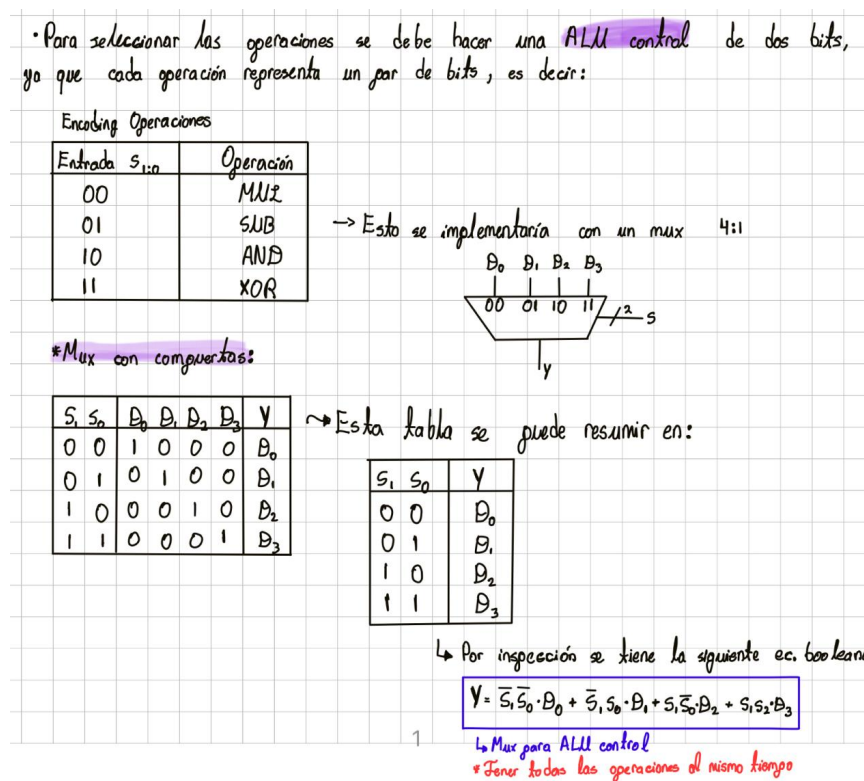 • Para seleccionar las operaciones se debe hacer una ALU control de dos bits,
ya que cada operación representa un par de bits, es decir:
Encoding Operaciones
Entrada S₁:₀ Operación
00 MUL
01 SUB
10 AND
11 XOR
→ Esto se implementaría con un mux 4:1
D₀ D₁ D₂ D₃
00 01 10 11
2 S
Y
*Mux con compuertas:
S₁ S₀ D₀ D₁ D₂ D₃ Y
0 0 1 0 0 0 D₀
0 1 0 1 0 0 D₁
1 0 0 0 1 0 D₂
1 1 0 0 0 1 D₃
↝ Esta tabla se puede resumir en:
S₁ S₀ Y
0 0 D₀
0 1 D₁
1 0 D₂
1 1 D₃
↳ Por inspección se tiene la siguiente ec. boolean
Y = S̅₁S̅₀·D₀ + S̅₁S₀·D₁ + S₁S̅₀·D₂ + S₁S₂·D₃
↳ Mux para ALU control
* Tener todas las operaciones al mismo tiempo
1